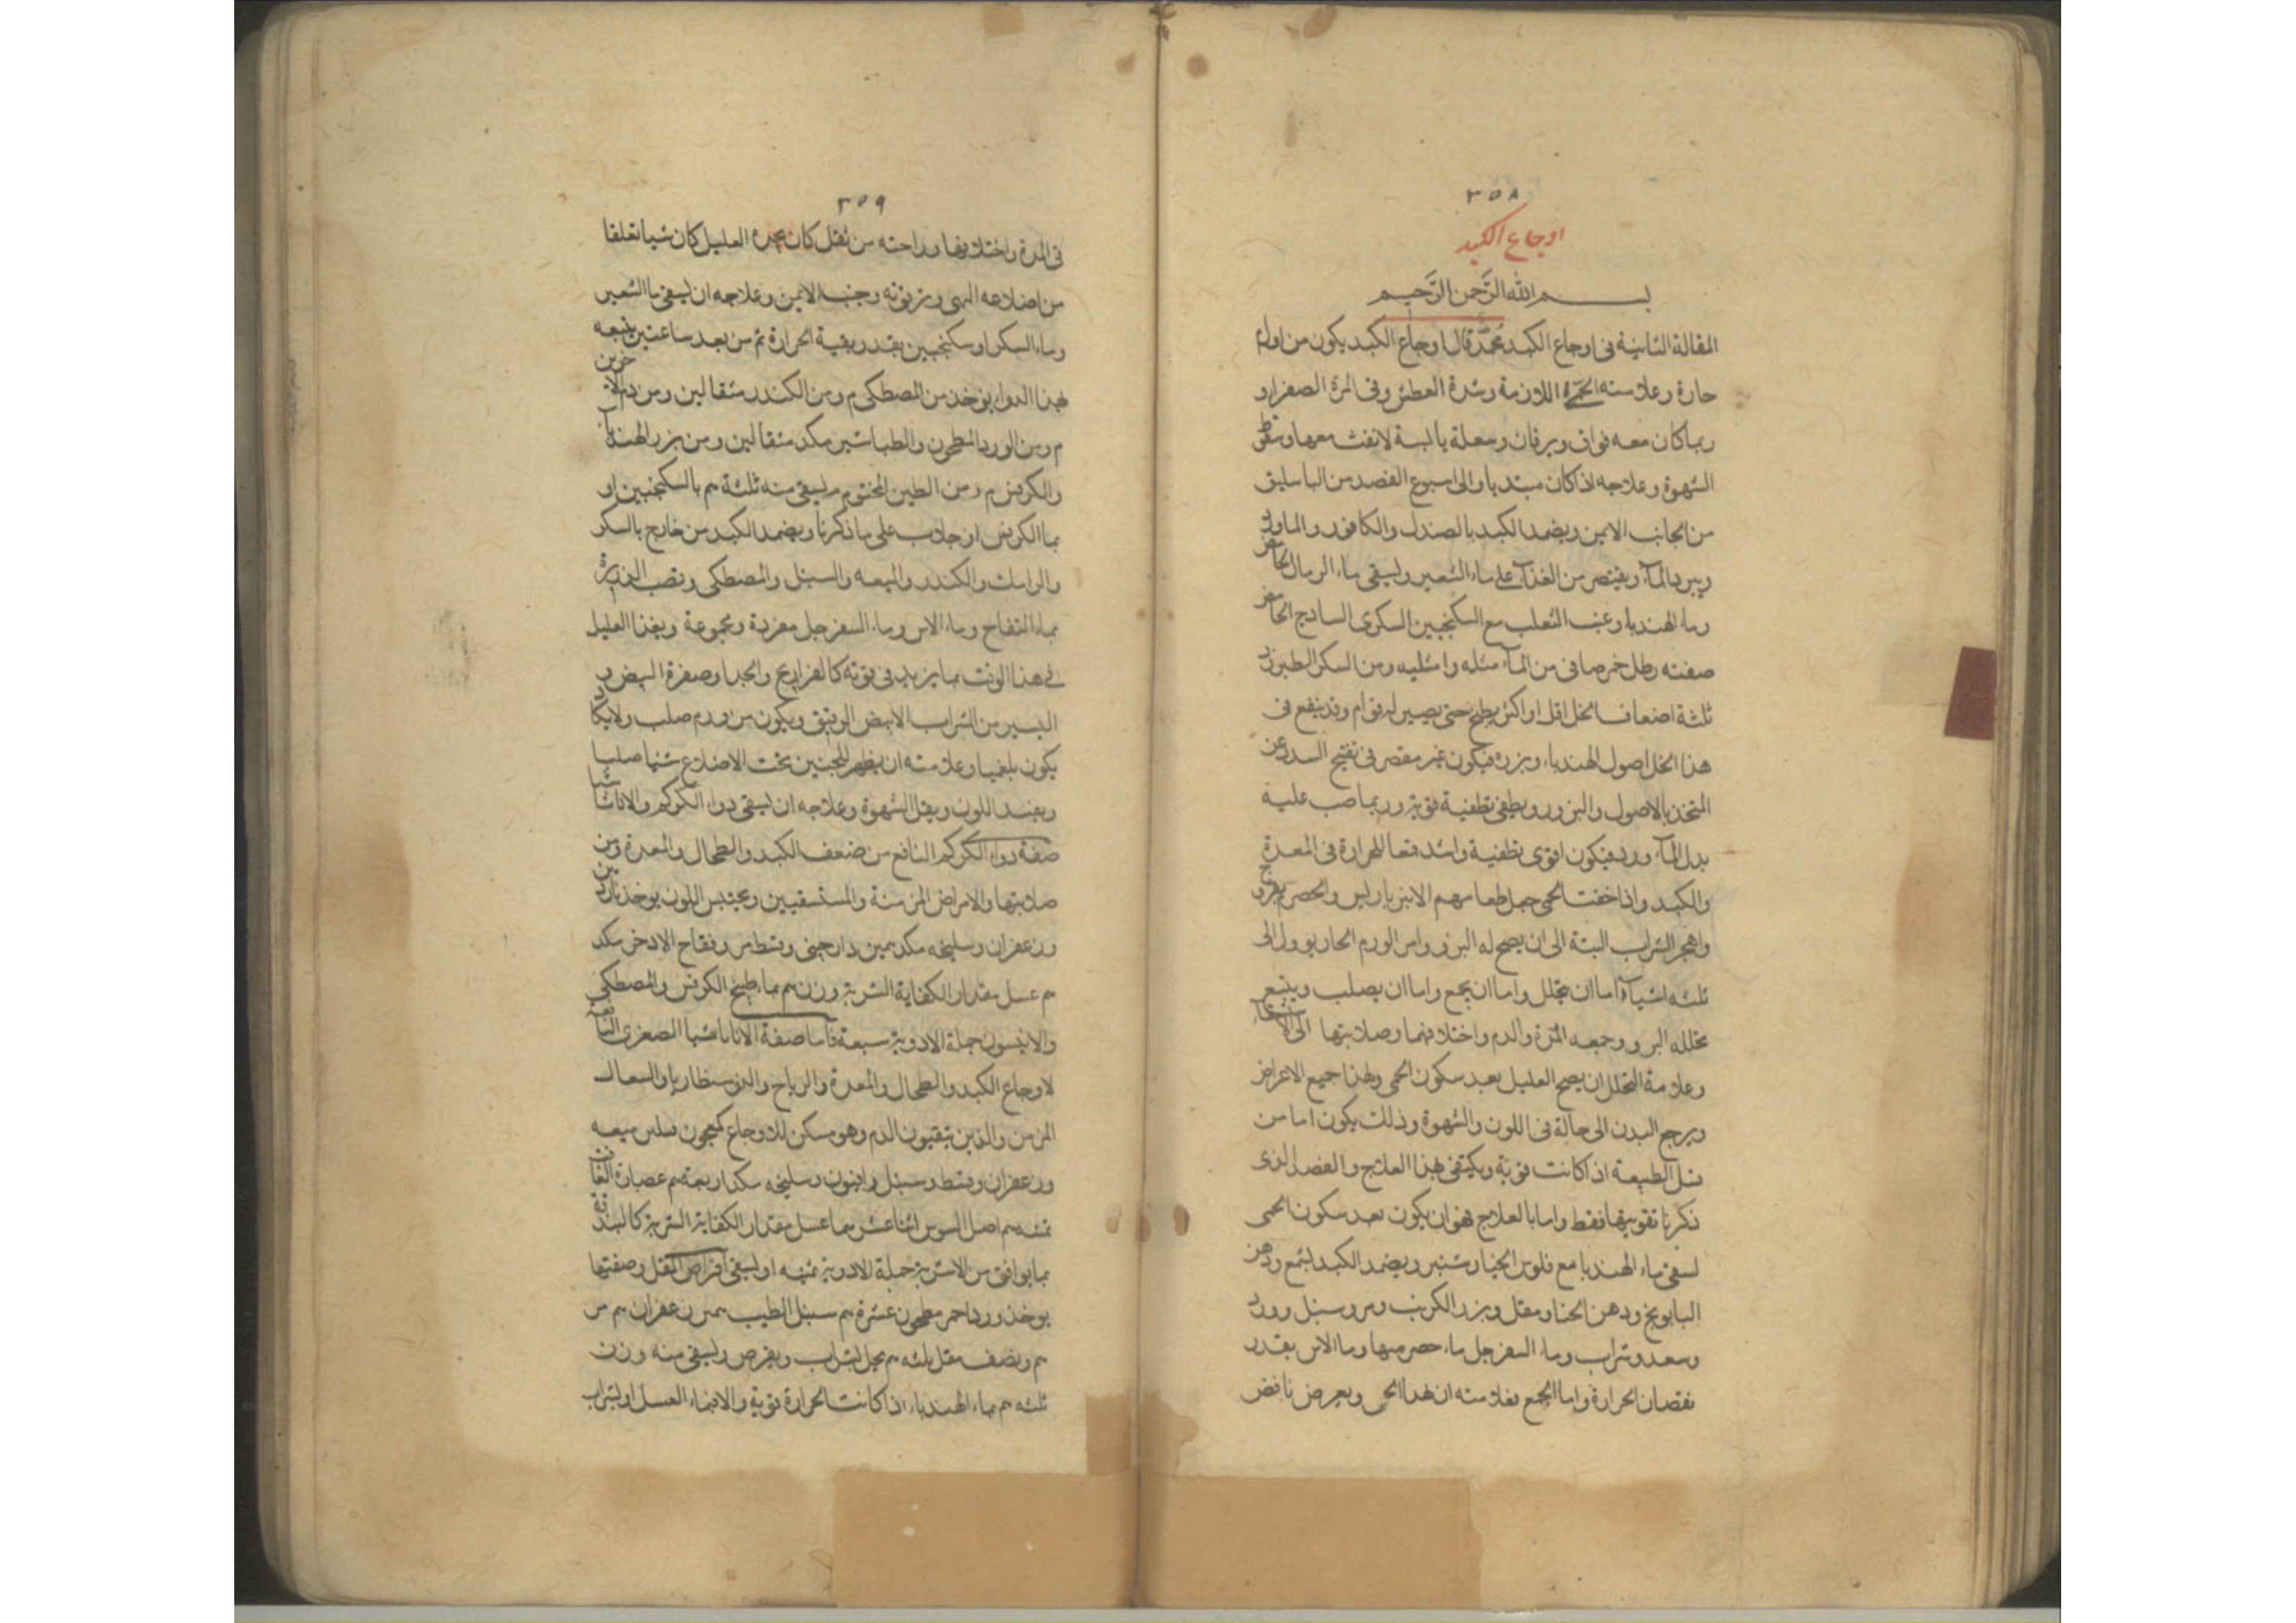 ٣٥٨
اوجاع الكبد
بسم الله الرَّحمن الرَّحيم
المقالة الثانية فى اوجاع الكبد محمَّد قال اوجاع الكبد يكون من اورام
حارة وعلامته الحمَّى اللازمة وشدة العطش وفى المرة الصفراو
ربما كان معه فواق ويرقان وسعلة يابسة لا نفث معها وسقوط
الشهوة وعلاجه اذا كان مبتديا والى اسبوع الفصد من الباسليق
من الجانب الايمن ويضمد الكبد بالصندل والكافور والماورد
ويبرد بالماء ويقتصر من الغذاء على ماء الشعير وليسقى ماء الرمان الحامض
وماء الهندباء وعنب الثعلب مع السكنجبين السكرى الساذج الحامض
صفته رطل خمر صافى من الماء مثله وامثليه ومن السكر الطبرزد
ثلثة اضعاف الخل اقل او اكثر يطبخ حتى يصير له قوام وقد ينقع فى
هذا الخل اصول الهندباء وبزره فيكون غير مقصر فى تفتيح السدد عن
المتخذ بالاصول والبزور ويطفى تطفية قوية وربما صب عليه
بدل الماء ورد فيكون اقوى تطفية واشد قمعا للحرارة فى المعدة
والكبد واذا خفت الحمى جعل طعامهم الانبرباريس والحصرم
واهجر الشراب البتة الى ان يصح له البرؤ وامر الورم الحار يوول الى
ثلثه اشياء اما ان يتحلل واما ان يجمع واما ان يصلب ويتبع
تحلله البرو وجمعه المدة والدم واختلافهما وصلابتها الى الاستسقاء
وعلامة التحلل ان يصح العليل بعد سكون الحمى ولهذا جميع الاعراض
ويرجع البدن الى حاله فى اللون والشهوة وذلك يكون اما من
قبل الطبيعة اذا كانت قوية ويكتفى بهذا العلاج والفصد الذى
ذكرنا تقويتها فقط واما بالعلاج فهو ان يكون بعد سكون الحمى
يسقى ماء الهندبا مع فلوس الخيار شنبر ويضمد الكبد بشمع ودهن
البابونج ودهن الحنا ومقل وبزر الكرنب ومر وسنبل وورد
وسعد وشراب وماء السفرجل ماء حصرمها وما الاس بقدر
نقصان الحرارة واما الجمع فعلامته ان تهدا الحمى ويعرض نافض
٣٥٩
فى المدة واختلافها وراحته من ثقل كان يجده العليل كان شيا تعلقا
من اضلاعه الى ترقوته وجنبه الايمن وعلاجه ان ليسقى ماء الشعير
وماء السكر او سكنجبين بقدر بقية الحرارة ثم من بعد ساعتين يتبعه
بهذا الدواء يوخذ من المصطكى م ومن الكندر مثقالين ومن دم الاخوين
م ومن الورد المطحون والطباشير مكد مثقالين ومن بزر الهندبا
والكرفس م ومن الطين المختوم م ليسقى منه ثلثة هم بالسكنجبين او
بماء الكرفس او جلاب على ما ذكرنا ويضمد الكبد من خارج بالسكر
والرامك والكندر والميعه والسنبل والمصطكى وقصب الذريرة
بماء التفاح وماء الاس وماء السفرجل مفردة ومجموعة ويغذا العليل
فى هذا الوقت بما يزيد فى قوته كالفراريج والجدا وصفرة البيض و
اليسير من الشراب الابيض الرقيق ويكون من ورم صلب ولا يكاد
يكون بلغميا وعلامته ان يظهر للمجسين تحت الاضلاع شئيا صلبا
ويفسد اللون ويقل الشهوة وعلاجه ان ليسقى دواء الكركم والاثاناسيا
صفة دواء الكركم النافع من ضعف الكبد والطحال والمعدة ومن
صلابتها والامراض المزمنة والمستسقيين ويحسن اللون يوخذ ناردين
وزعفران وسليخه مكد همين دارجينى وقسط مر وفقاح الاذخر مكد
هم عسل مقدار الكفاية الشربة وزن هم بماء طبيخ الكرفس والمصطكى
والانيسون جملة الادوية سبعة فاما صفة الاثاناسيا الصغرى النافعة
لاوجاع الكبد والطحال والمعدة والرياح والدوسنطاريا والسعال
المزمن والذين يتقيون الدم وهو مسكن للاوجاع كمعجون فلس ميعه
وزعفران وقسط وسنبل وافيون وسليخه مكد اربعة هم عصارة الغافت
ثمنيه هم اصل السوس اثنا عشر هما عسل مقدار الكفاية الشربة كالبندقة
بما يوافق من الاشربة جملة الادوية ثمنيه او ليسقى اقراص المقل وصفتها
يوخذ ورد احمر مطحون عشرة هم سنبل الطيب همين زعفران هم مر
هم ونصف مقل ثلثه هم يحل بشراب ويقرص وليسقى منه وزن
ثلثه هم بماء الهندباء اذا كانت الحرارة قوية والا فبماء العسل او بشراب